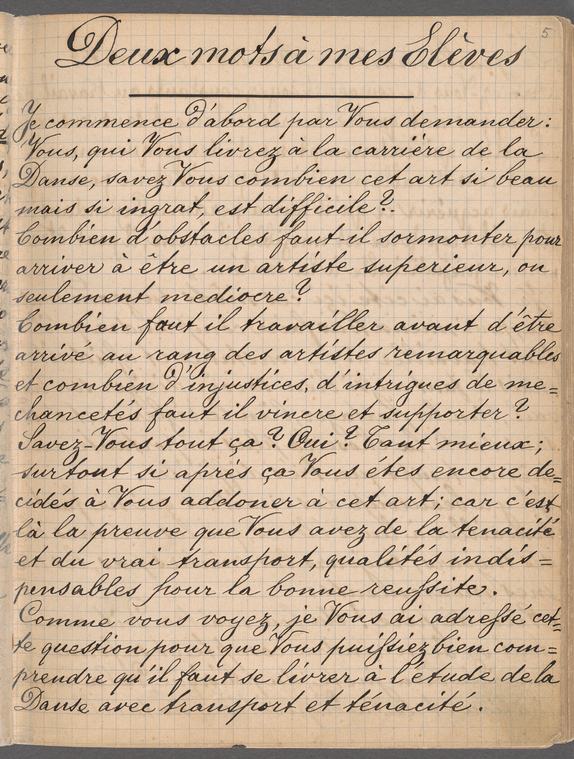 5
Deux mots à mes Elèves
Je commence d'abord par Vous demander:
Vous, qui Vous livrez à la carriére de la
Danse, savez Vous combien cet art si beau
mais si ingrat, est difficile?.
Combien d'obstacles faut-il sormonter pour
arriver à être un artiste superieur, ou
seulement mediocre?
Combien faut il travailler avant d'être
arrivé au rang des artistes remarquables
et combien d'injustices, d'intrigues de me=
chancetés faut il vincre et supporter?
Savez-Vous tout ça? Oui? Tant mieux;
surtout si aprés ça Vous étes encore de=
cidés à Vous addoner à cet art; car c'est
là la preuve que Vous avez de la tenacité
et du vrai transport, qualités indis=
pensables pour la bonne reußite.
Comme vous voyez, je Vous ai adreßé cet=
te question pour que Vous puißiez bien com=
prendre qu'il faut se livrer à l'étude de la
Danse avec transport et ténacité.